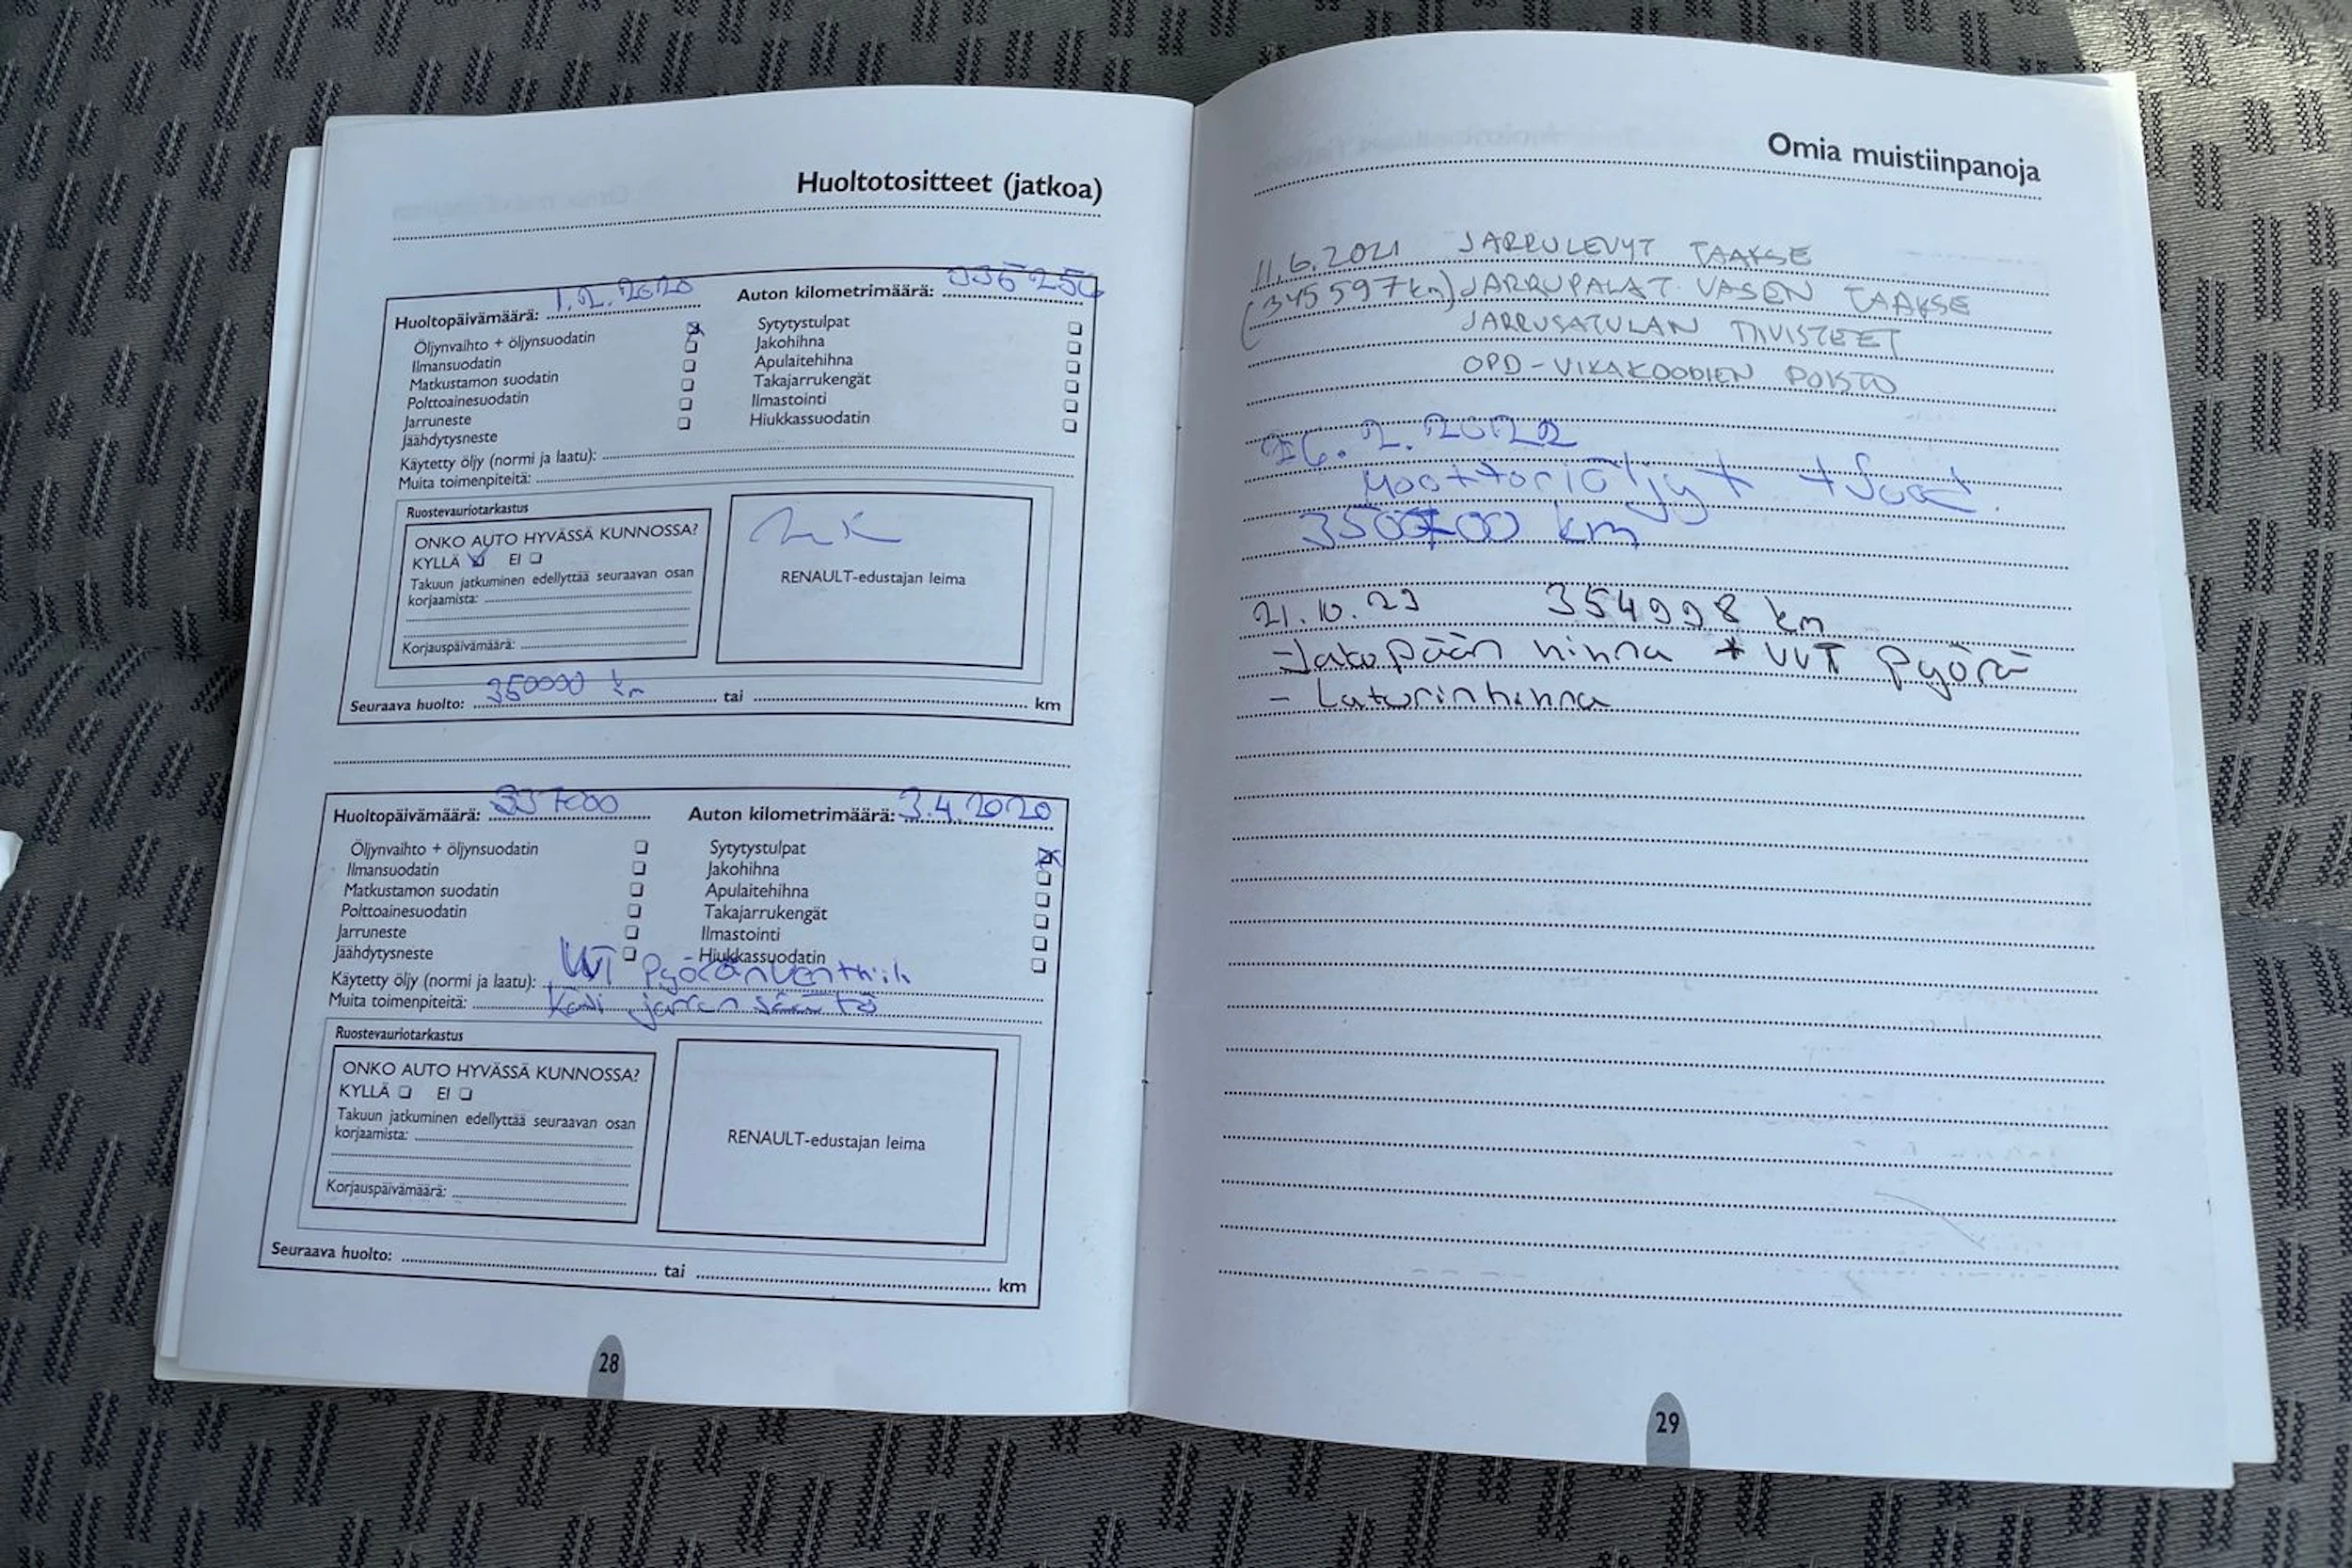 Huoltotositteet (jatkoa)
Huoltopäivämäärä: 1.2.2020 Auton kilometrimäärä: 336250
Öljynvaihto + öljynsuodatin Sytytystulpat
Ilmansuodatin Jakohihna
Matkustamon suodatin Apulaitehihna
Polttoainesuodatin Takajarrukengät
Jarruneste Ilmastointi
Jäähdytysneste Hiukkassuodatin
Käytetty öljy (normi ja laatu):
Muita toimenpiteitä:
Ruostevauriotarkastus
ONKO AUTO HYVÄSSÄ KUNNOSSA?
KYLLÄ EI
Takuun jatkuminen edellyttää seuraavan osan
korjaamista:
Korjauspäivämäärä:
RENAULT-edustajan leima
Seuraava huolto: 350000 km tai km
Huoltopäivämäärä: 337000 Auton kilometrimäärä: 3.4.2020
Öljynvaihto + öljynsuodatin Sytytystulpat
Ilmansuodatin Jakohihna
Matkustamon suodatin Apulaitehihna
Polttoainesuodatin Takajarrukengät
Jarruneste Ilmastointi
Jäähdytysneste Hiukkassuodatin
Käytetty öljy (normi ja laatu): VVT Pyöränventtiili
Muita toimenpiteitä: Käsi jarrun säätö
Ruostevauriotarkastus
ONKO AUTO HYVÄSSÄ KUNNOSSA?
KYLLÄ EI
Takuun jatkuminen edellyttää seuraavan osan
korjaamista:
Korjauspäivämäärä:
RENAULT-edustajan leima
Seuraava huolto: tai km
28
Omia muistiinpanoja
11.6.2021 JARRULEVYT TAAKSE
(345597km) JARRUPALAT VASEN TAAKSE
JARRUSATULAN TIIVISTEET
OPD-VIKAKOODIEN POISTO
26.2.2022
Moottoriöljyt + Suod.
350700 km
21.10.23 354998 km
- Jakopään hihna + VVT Pyörä
- Laturinhihna
29